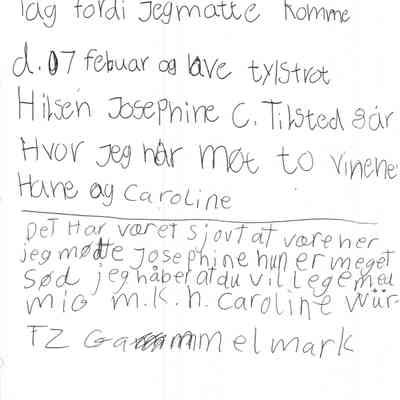 lag fordi jegmåtte komme
d. 07 febuar og lave tylstrot
Hilsen Josephine C. Tilsted 8år
Hvor jeg har møt to vinene
Hane og Caroline
Det Har været sjovt at være her
jeg mødte Josephine hun er meget
sød jeg håber at du vil lege med
mig m.k.h. Caroline Wür-
TZ Gammelmark